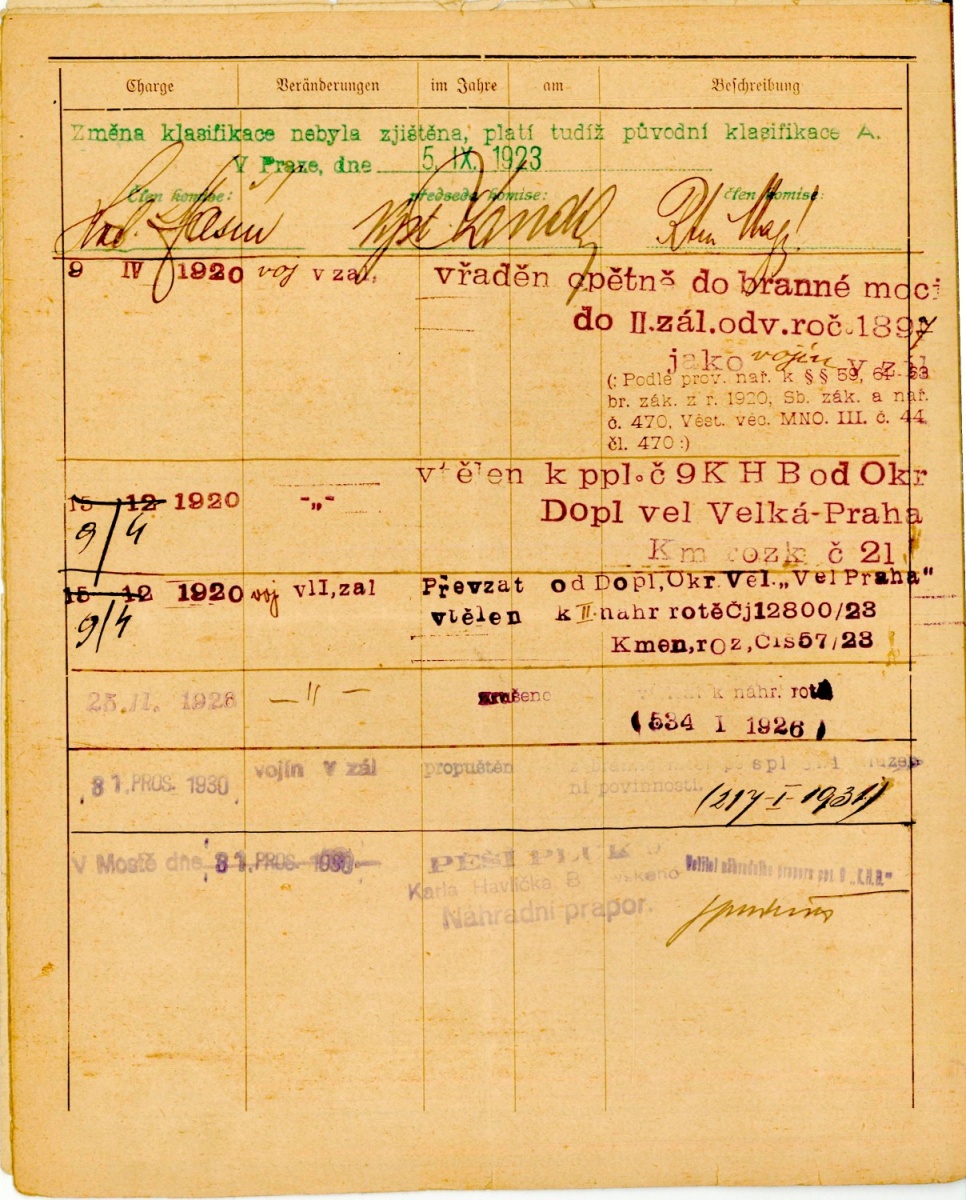 Charge Veränderungen im Jahre am Beschreibung
Změna klasifikace nebyla zjištěna, platí tudíž původní klasifikace A.
V Praze, dne 5. IX. 1923
Člen komise: předseda komise: člen komise:
9 IV 1920 voj v zál, vřaděn opětně do branné moci
do II.zál.odv.roč.1897
jako vojín v zál
(: Podle prov. nař. k §§ 59, 61-63
br. zák. z r. 1920, Sb. zák. a nař.
č. 470, Věst. věc. MNO. III. č. 44
čl. 470 :)
vtělen k ppl.č 9 K H B od Okr
15 12 1920 -„- Dopl vel Velká-Praha
9/4
Km rozk č 21
15 12 1920 voj vII,zal Převzat od Dopl,Okr.Vel.„Vel Praha“
9/4 vtělen k II náhr rotě Čj12800/23
Kmen,roz,Čís57/23
— " — zrušeno k náhr. rotě
(534 I 1926)
31. PROS. 1930 vojín v zál propuštěn
ní povinnosti. (217-I-1931)
V Mostě dne 31. PROS. 1930 PĚŠÍ PLUK 9
Karla Havlíčka Velitel náhradního praporu pp. 9 „K.H.B.“
Náhradní prapor.